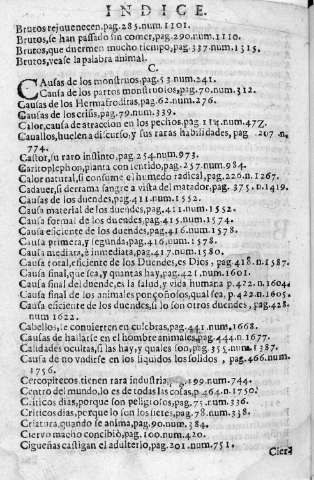 INDICE.
Brutos rejouenecen.pag.285.num.1101.
Brutos, se han passado sin comer, pag.290.num.1110.
Brutos, que duermen mucho tiempo, pag.337.num.1315.
Brutos, vea se la palabra animal.
C.
CAusas de los monstruos, pag.53.num.241.
Causa de los partos monstruosos, pag.70.num.312.
Causas de los Hermafroditas, pag.62.num.276.
Causas de los crisis, pag.79.num.339.
Calor, causa de atraccion en los pechos, pag.114.num.477.
Cauallos, huelen a discurso, y sus raras habilidades, pag. 207.n.
774.
Castor, su raro instinto, pag.254.num.973.
Garitoplephos, planta con sentido, pag.257.num.984.
Calor natural, si consume el humedo radical, pag.226.n.1267.
Cadauer, si derrama sangre a vista del matador, pag. 375.n.1419.
Causas de los duendes, pag.411.num.1552.
Causa material de los duendes, pag.411.num.1552.
Causa formal de los duendes, pag.415.num.1574.
Causa eficiente de los duendes, pag.416.num.1578.
Causa primera, y segunda, pag.416.num.1578.
Causa mediata, è inmediata, pag.417.num.1580.
Causa total, eficiente de los Duendes, es Dios, pag.418.n.1587.
Causa final, que sea, y quantas hay, pag.421.num.1601.
Causa final del duende, es la salud, y vida humana p.422.n.1604.
Causa final de los animales ponçoñosos, qual sea, p.422.n.1605.
Causa eficiente de los duendes, si lo son otros duendes, pag.428.
num 1622.
Cabellos, se conuierten en culebras, pag.441.num.1668.
Causas de hallarse en el hombre animales, pag.444.n.1677.
Calidades ocultas, si las hay, y quales son, pag.355.num.1387.
Causa de no vndirse en los liquidos los solidos, pag.466.num.
1756.
Cercopitecos tienen rara industria, pag.199.num.744.
Centro del mundo, lo es de todas las cosas, p.464.n.1750.
Criticos dias, porque son peligrosos, pag.75.num.336.
Criticos dias, porque lo son los sietes, pag.78.num.338.
Criatura, quando se anima, pag.90.num.384.
Cieruo macho concibiò, pag.100.num.420.
Cigueñas castigan el adulterio, pag.201.num.751.
Cier-